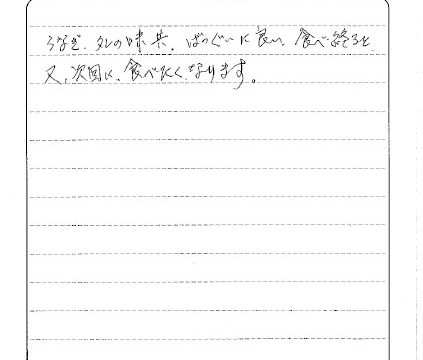 うなぎ、タレの味共、ばつぐんに良い、食べ終ると
又、次回に、食べたくなります。